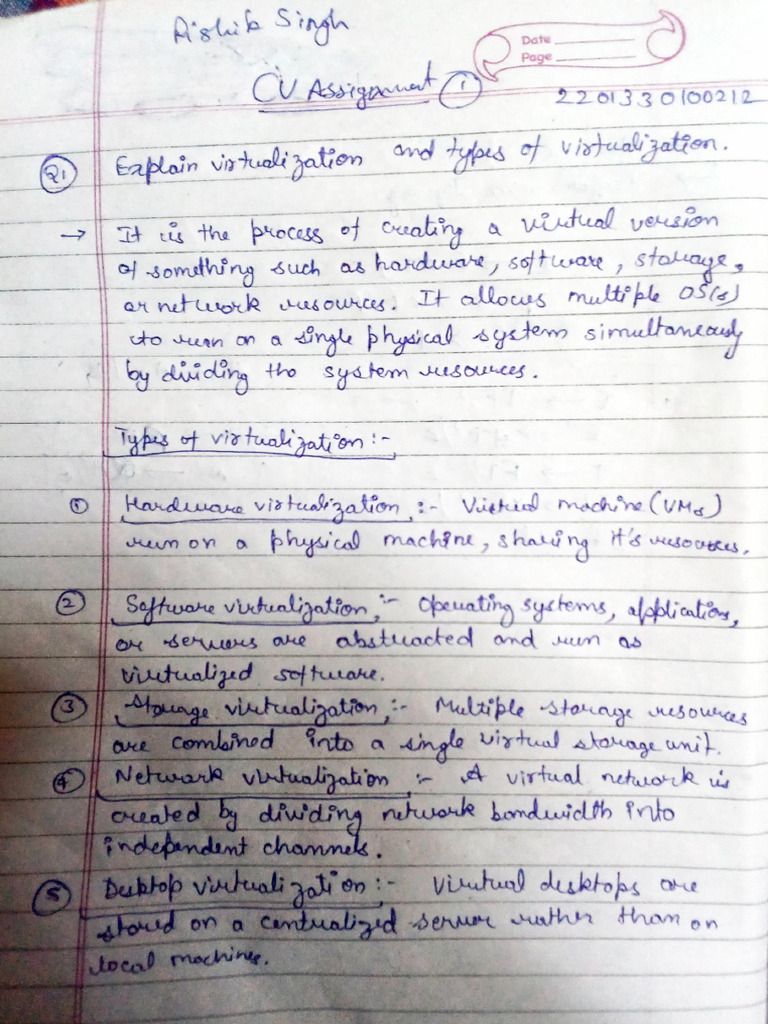 Rishik Singh
Date
Page
CV Assignment 1
2201330100212
Q1 Explain virtualization and types of virtualization.
→ It is the process of creating a virtual version
of something such as hardware, software, storage,
or network resources. It allows multiple OS(s)
to run on a single physical system simultaneously
by dividing the system resources.
Types of virtualization :-
① Hardware virtualization :- Virtual machine (VMs)
run on a physical machine, sharing it's resources.
② Software virtualization :- Operating systems, applications,
or servers are abstracted and run as
virtualized software.
③ Storage virtualization :- Multiple storage resources
are combined into a single virtual storage unit.
④ Network virtualization :- A virtual network is
created by dividing network bandwidth into
independent channels.
⑤ Desktop virtualization :- Virtual desktops are
stored on a centralized server rather than on
local machines.